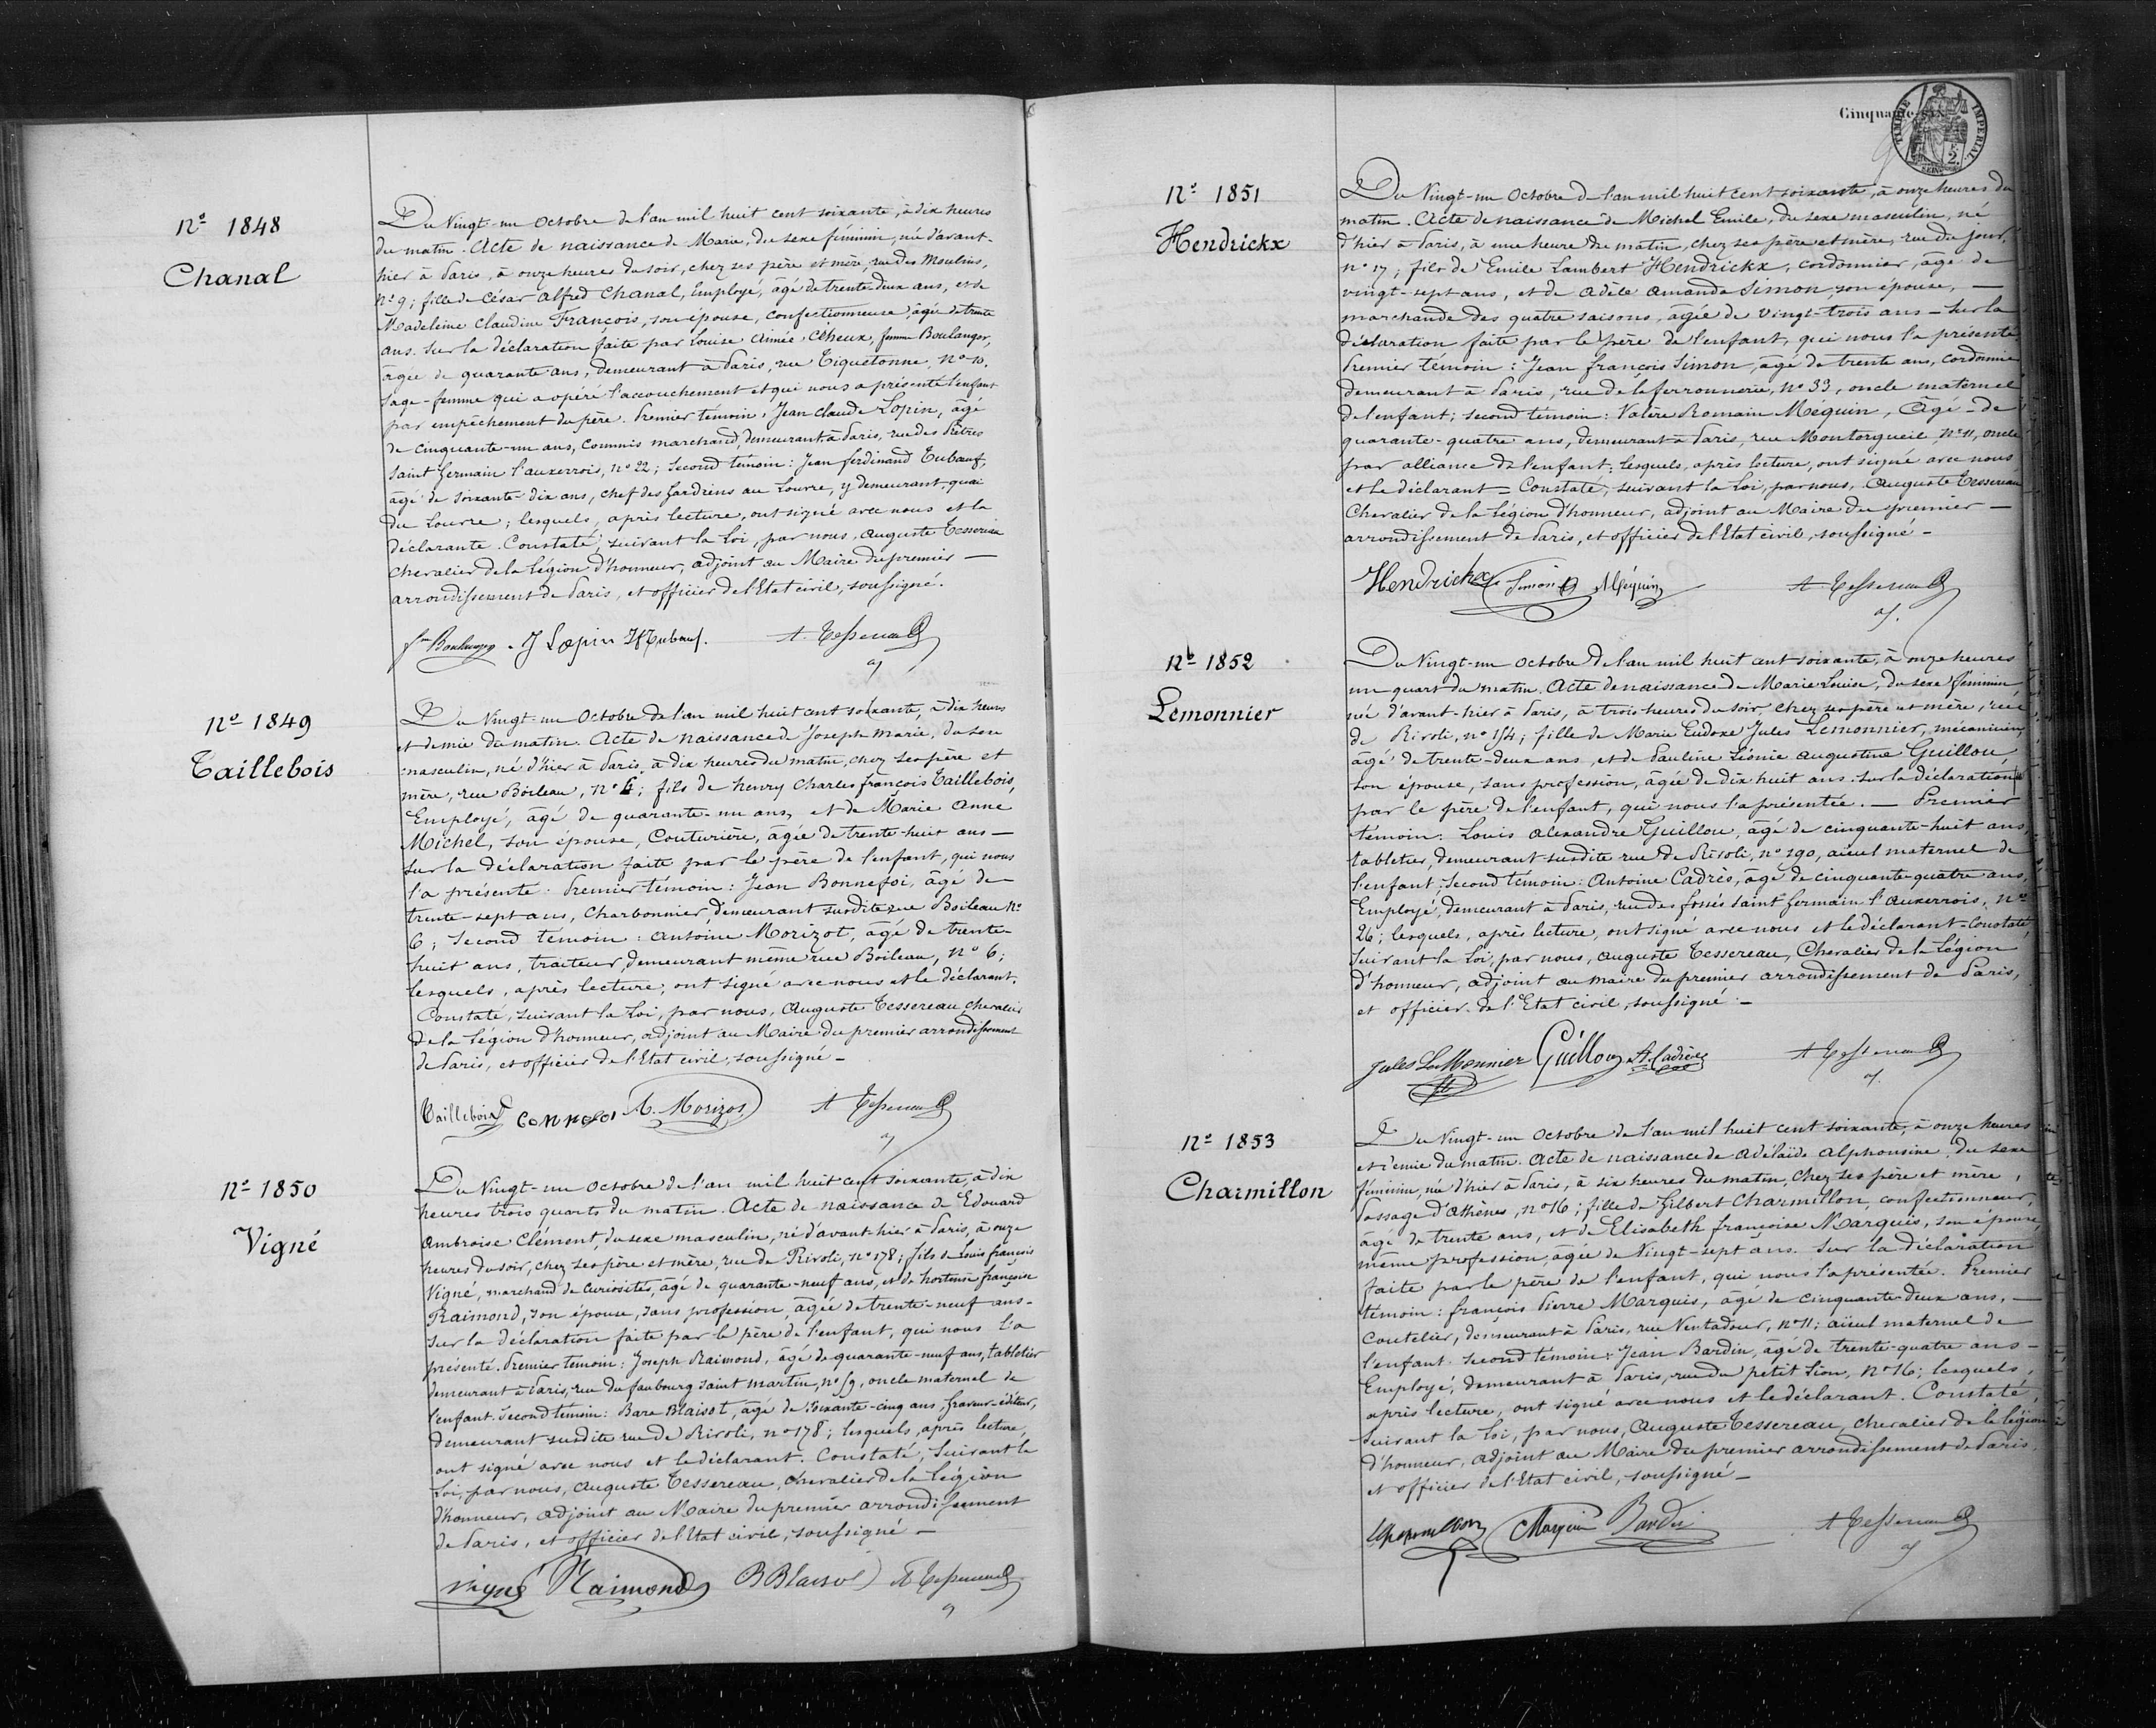 Nº 1848
Chanal
Du Vingt-un Octobre de l'an mil huit cent soixante, à dix heures
du matin. Acte de naissance de Marie, du sexe féminin, née d'avant-
hier à Paris, à onze heures du soir, chez ses père et mère, rue des Moulins,
nº 9; fille de César Alfred Chanal, Employé, âgé de trente-deux ans, et de
Madeleine Claudine François, son épouse, confectionneuse, âgée de trente
ans. Sur la déclaration faite par Louise Aimée Cheux, femme Boulanger,
âgée de quarante ans, demeurant à Paris, rue Tiquetonne, nº 10,
sage-femme qui a opéré l'accouchement et qui nous a présenté l'enfant
par empêchement du père. Premier témoin: Jean Claude Lopin, âgé
de cinquante-un ans, Commis marchand, demeurant à Paris, rue des Prêtres
Saint Germain l'auxerrois, nº 22; Second témoin: Jean ferdinand Tubœuf,
âgé de soixante-dix ans, chef des Gardiens au Louvre, y demeurant, quai
du Louvre; lesquels, après lecture, ont signé avec nous et la
déclarante. Constaté, suivant la Loi, par nous, Auguste Tessereau
Chevalier de la Légion d'honneur, adjoint au Maire du premier —
arrondissement de Paris, et officier de l'Etat civil, soussigné.
fme Boulanger J Lopin Tubœuf. A. Tessereau
Nº 1849
Taillebois
Du Vingt-un Octobre de l'an mil huit cent soixante, à dix heures
et demie du matin. Acte de naissance de Joseph Marie, du sexe
masculin, né d'hier à Paris, à dix heures du matin, chez ses père et
mère, rue Boileau, nº 6; fils de henry Charles françois Taillebois,
Employé, âgé de quarante-un ans, et de Marie Anne
Michel, son épouse, Couturière, âgée de trente-huit ans —
Sur la déclaration faite par le père de l'enfant, qui nous
l'a présenté. Premier témoin: Jean Bonnefoi, âgé de
trente-sept ans, Charbonnier, demeurant susdite rue Boileau Nº
6; Second témoin: Antoine Morizot, âgé de trente-
huit ans, traiteur, demeurant même rue Boileau, nº 6;
lesquels, après lecture, ont signé avec nous et le déclarant.
Constaté, suivant la Loi, par nous, Auguste Tessereau, Chevalier
de la Légion d'honneur, adjoint au Maire du premier arrondissement
de Paris, et officier de l'Etat civil, soussigné —
Taillebois A. Morizot A Tessereau
Nº 1850
Vigné
Du Vingt-un Octobre de l'an mil huit cent soixante, à dix
heures trois quarts du matin. Acte de naissance de Edouard
Ambroise Clément, du sexe masculin, né d'avant-hier à Paris, à onze
heures du soir, chez ses père et mère, rue de Rivoli, nº 178; fils de Louis françois
Vigné, marchand de Curiosités, âgé de quarante-neuf ans, et de hortense françoise
Raimond, son épouse, sans profession, âgée de trente-neuf ans -
Sur la déclaration faite par le père de l'enfant, qui nous l'a
présenté. Premier témoin: Joseph Raimond, âgé de quarante-neuf ans, tabletier
demeurant à Paris, rue du faubourg Saint Martin, nº 59, oncle maternel de
l'enfant. Second témoin: Bare Blaisot, âgé de soixante-cinq ans, graveur-éditeur,
demeurant susdite rue de Rivoli, nº 178; lesquels, après lecture,
ont signé avec nous et le déclarant. Constaté, Suivant la
Loi, par nous, Auguste Tessereau, chevalier de la Légion
d'honneur, adjoint au Maire du premier arrondissement
de Paris, et officier de l'Etat civil, soussigné —
Vigné Raimond B Blaisot A Tessereau
Cinquante-six
TIMBRE IMPERIAL
2.
SEINE
Nº 1851
Hendrickx
Du Vingt-un Octobre de l'an mil huit cent soixante, à onze heures du
matin. Acte de naissance de Michel Emile, du sexe masculin, né
d'hier à Paris, à une heure du matin, chez ses père et mère, rue du Jour,
nº 17; fils de Emile Lambert Hendrickx, cordonnier, âgé de
vingt-sept ans, et de Adèle Amanda Simon, son épouse, —
marchande des quatre saisons, âgée de vingt-trois ans — Sur la
déclaration faite par le père de l'enfant, qui nous l'a présenté.
Premier témoin: Jean françois Simon, âgé de trente ans, cordonnier
demeurant à Paris, rue de la ferronnerie, nº 33, oncle maternel
de l'enfant; second témoin: Valère Romain Méquin, âgé de
quarante-quatre ans, demeurant à Paris, rue Montorgueil nº 11, oncle
par alliance de l'enfant; lesquels, après lecture, ont signé avec nous
et le déclarant = Constaté, suivant la Loi, par nous, Auguste Tessereau
Chevalier de la Légion d'honneur, adjoint au Maire du premier —
arrondissement de Paris, et officier de l'Etat civil, soussigné —
Hendrickx Simon Méquin A Tessereau
Nº 1852
Lemonnier
Du Vingt-un Octobre de l'an mil huit cent soixante, à onze heures
un quart du matin. Acte de naissance de Marie Louise, du sexe féminin
née d'avant-hier à Paris, à trois heures du soir, chez ses père et mère, rue
de Rivoli, nº 154; fille de Marie Eudoxe Jules Lemonnier, mécanicien,
âgé de trente-deux ans, et de Pauline Léonie Augustine Guillou,
son épouse, sans profession, âgée de dix huit ans. Sur la déclaration
par le père de l'enfant, qui nous l'a présentée. — Premier
témoin: Louis Alexandre Guillou, âgé de cinquante-huit ans,
tabletier, demeurant susdite rue de Rivoli, nº 190, aïeul maternel de
l'enfant; Second témoin: Antoine Cadrès, âgé de cinquante-quatre ans,
Employé, demeurant à Paris, rue des fossés Saint Germain l'Auxerrois, nº
26; lesquels, après lecture, ont signé avec nous et le déclarant - Constaté,
Suivant la Loi, par nous, Auguste Tessereau, Chevalier de la Légion
d'honneur, adjoint au maire du premier arrondissement de Paris,
et officier de l'Etat civil, soussigné —
Jules LeMonnier Guillou A. Cadrès A Tessereau
Nº 1853
Charmillon
Du Vingt-un Octobre de l'an mil huit cent soixante, à onze heures
et demie du matin. Acte de naissance de Adélaïde Alphonsine, du sexe
féminin, née d'hier à Paris, à six heures du matin, chez ses père et mère,
Passage d'Athènes, nº 16; fille de Gilbert Charmillon, confectionneur,
âgé de trente ans, et de Elisabeth françoise Marquis, son épouse,
même profession, âgée de Vingt-sept ans. Sur la déclaration
faite par le père de l'enfant, qui nous l'a présentée. Premier
témoin: françois Pierre Marquis, âgé de cinquante-deux ans, —
Coutelier, demeurant à Paris, rue Ventadour, nº 11; aïeul maternel de
l'enfant. Second témoin: Jean Bardin, âgé de trente-quatre ans -
Employé, demeurant à Paris, rue du petit Lion, nº 16; lesquels,
après lecture, ont signé avec nous et le déclarant. Constaté,
Suivant la Loi, par nous, Auguste Tessereau, chevalier de la légion
d'honneur, adjoint au Maire du premier arrondissement de Paris,
et officier de l'Etat civil, soussigné —
Charmillon Marquis Bardin A Tessereau